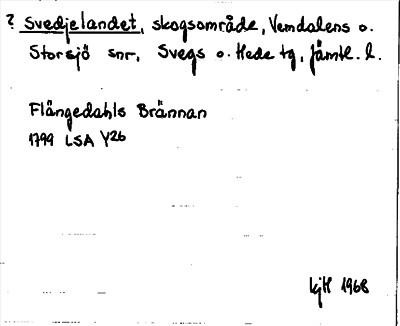 ? Svedjelandet, skogsområde, Vemdalens o.
Storsjö snr, Svegs o. Hede tg, Jämtl. l.
Flångedahls Brännan
1799 LSA Y26
kjH 1968